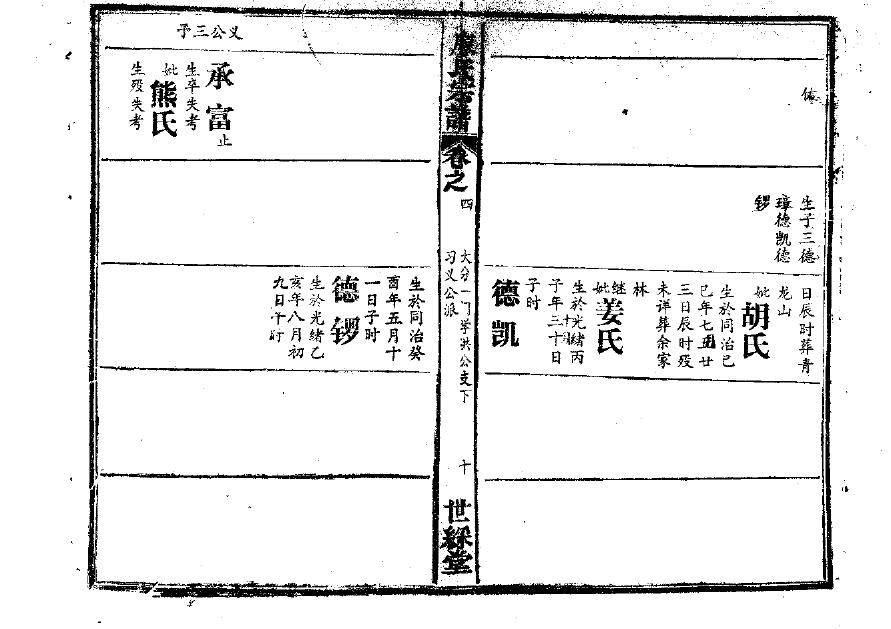 生子三德
璋德凯德
锣
日辰时葬青
龙山
妣胡氏
生於同治己
巳年七月廿
三日辰时殁
未详葬余家
林
继妣姜氏
生於光緒丙
子年十月三十日
子时
德凯
氏宗譜
卷之四
大分一门学洪公支下
习义公派
十
世綵堂
义公三子
承富止
生卒失考
妣熊氏
生殁失考
生於同治癸
酉年五月十
一日子时
德锣
生於光緒乙
亥年八月初
九日午时